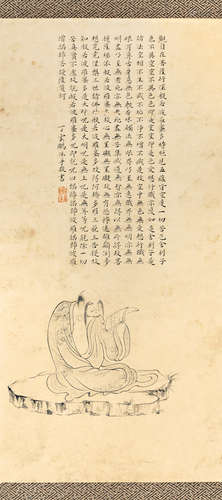 觀自在菩薩行深般若波羅蜜多時照見五蘊皆空度一切苦厄舍利子
色不異空空不異色色即是空空即是色受想行識亦復如是舍利子是
諸法空相不生不滅不垢不淨不增不減是故空中無色無受想行識無
眼耳鼻舌身意無色聲香味觸法無眼界乃至無意識界無無明亦無無
明盡乃至無老死亦無老死盡無苦集滅道無智亦無得以無所得故菩提
薩埵依般若波羅蜜多故心無罣礙無罣礙故無有恐怖遠離顛倒夢
想究竟涅槃三世諸佛依般若波羅蜜多故得阿耨多羅三藐三菩提故
知般若波羅蜜多是大神咒是大明咒是無上咒是無等等咒能除一切
苦真實不虛故說般若波羅蜜多咒即說咒曰揭諦揭諦波羅揭諦波羅
僧揭諦菩提薩婆訶
丁雲鵬沐手敬書